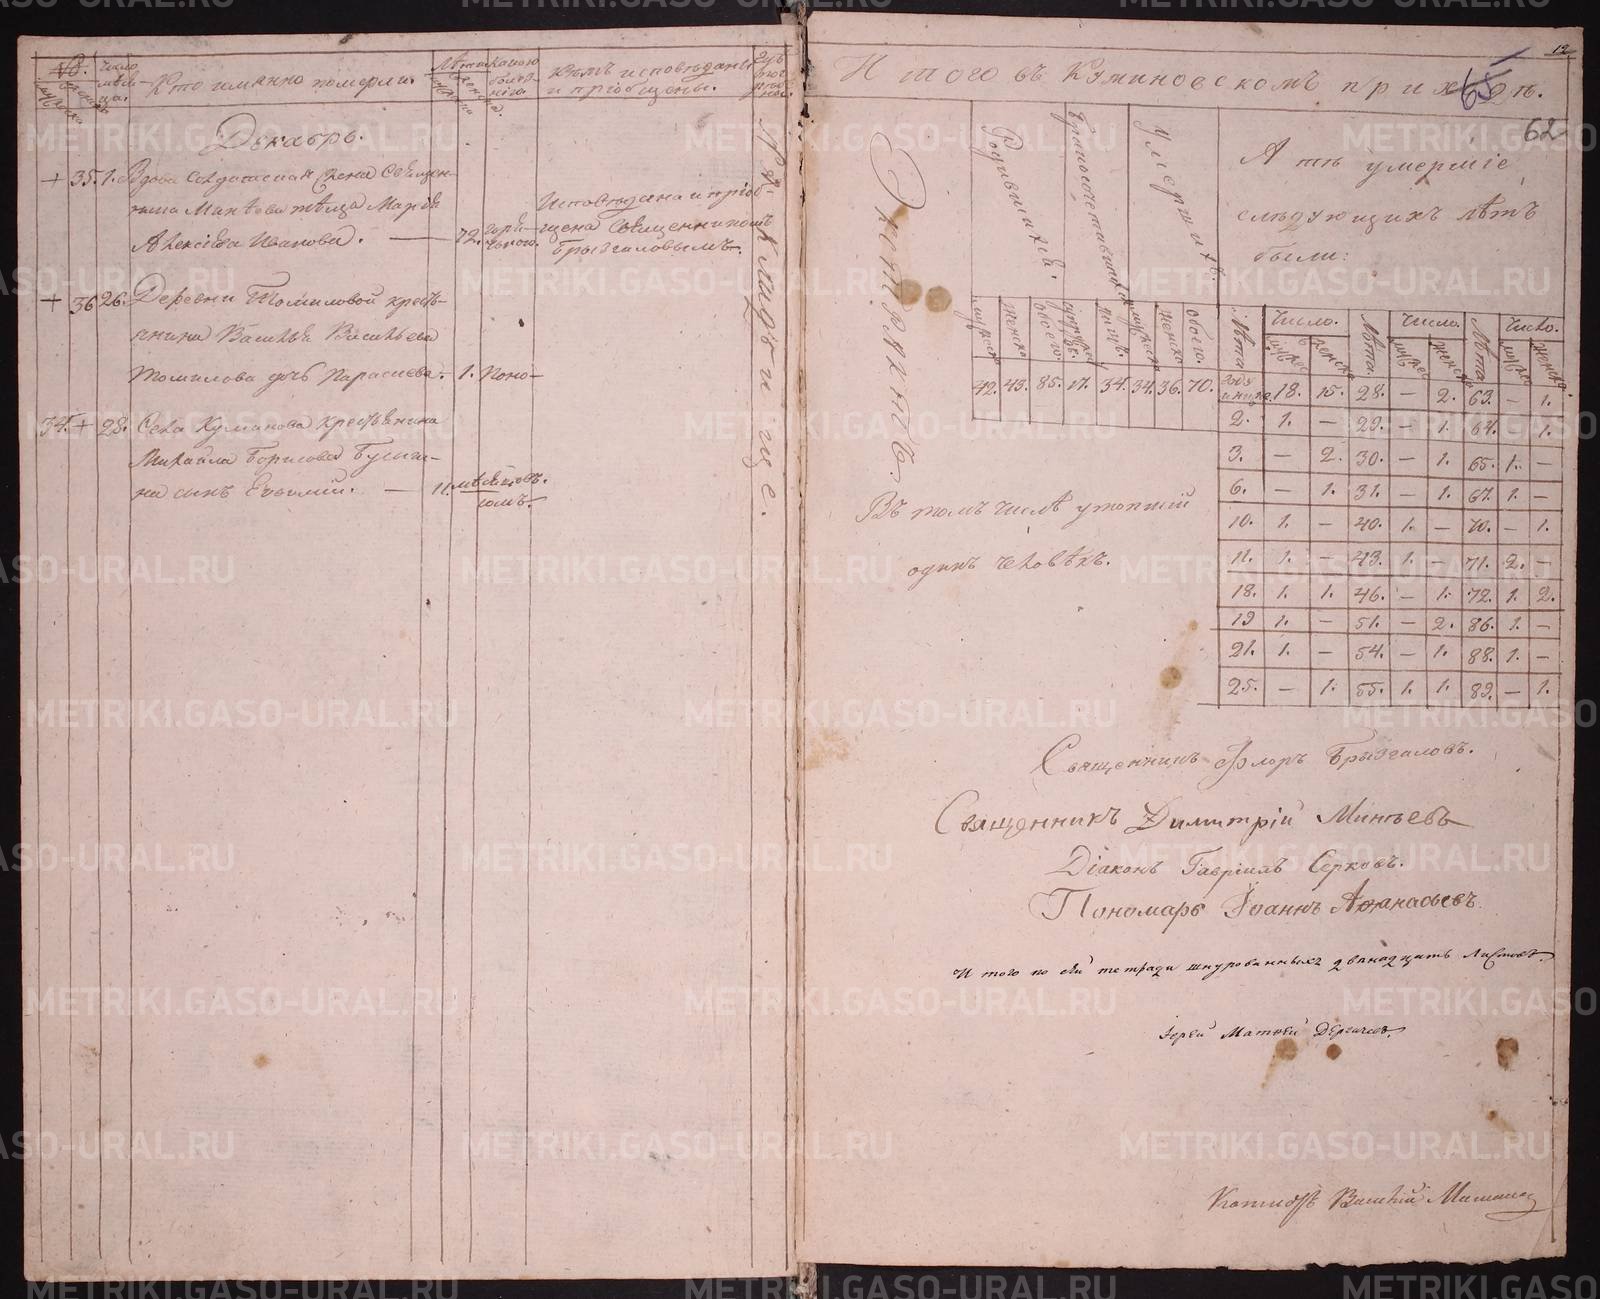 №.
Число мѣсяца.
Кто имянно померли.
Лѣта
какою болѣзнію.
Кѣмъ исповѣданы и пріобщены.
Декабрь.
+ 35. 1. Вдова Солдатская жена Священ-
Марія
Алексіева Иванова. — 72. горячкою.
Исповѣдана и пріоб-
щена Священникомъ
Брызгаловымъ.
+ 36 26. Деревни Томиловой кресть-
янина Василья Васильева
Томилова дочь Параскева. 1. Поно-
34. + 28. Села Куманова крестьянина
Михаила Борисова
на сынъ Евфимій. — 11. мѣсяцовъ.
На кладбище.
12
65
62
Итого въ Куминовскомъ приходѣ.
Экстрактъ.
Родившихся.
Бракосочетавшихся
Умершихъ.
А тѣ умершіе
слѣдующихъ лѣтъ
были:
мужеска женска обоего. лицъ. мужеска женска обоего.
42. 43. 85. 17. 34. 34. 36. 70.
Лѣта. Число. Лѣта. Число. Лѣта. Число.
мужес женска мужес женска мужес женска
18. 15. 28. — 2. 63. — 1.
2. 1. — 29. — 1. 64. 1.
3. — 2. 30. — 1. 65. 1. —
6. — 1. 31. — 1. 67. 1. —
10. 1. — 40. 1. — 70. — 1.
11. 1. — 43. 1. — 71. 2. —
18. 1. 1. 46. — 1. 72. 1. 2.
19 1. — 51. — 2. 86. 1. —
21. 1. — 54. — 1. 88. 1. —
25. — 1. 55. 1. 1. 89. — 1.
Въ томъ числѣ утопшій
одинъ человѣкъ.
Священникъ Флоръ Брызгаловъ.
Священникъ Димитрій Минѣевъ
Діаконъ Гавріилъ Серковъ.
Пономарь Іоаннъ Аѳанасьевъ
Итого по сей тетради шнурованныхъ двенадцать листовъ.
Іерей Матѳей Дергачевъ.
Копіистъ Василій
METRIKI.GASO-URAL.RU